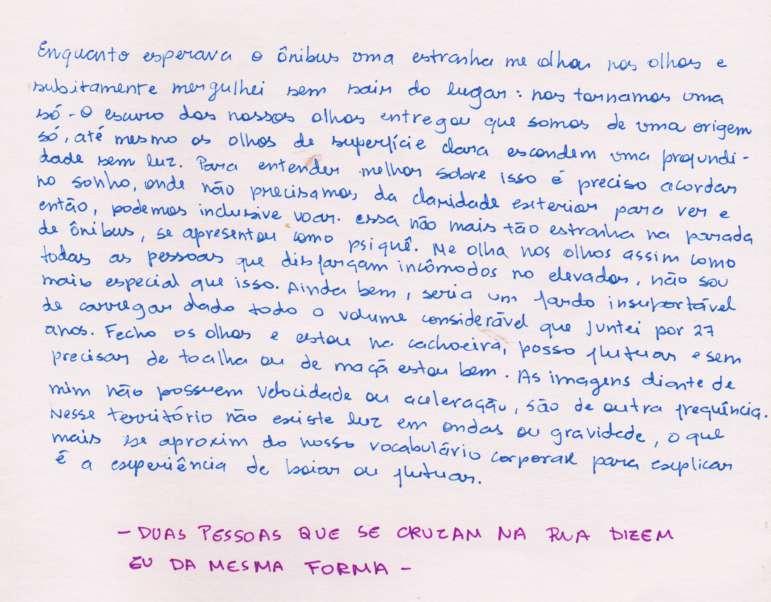 Enquanto esperava o ônibus uma estranha me olhou nos olhos e
subitamente mergulhei sem sair do lugar: nos tornamos uma
só - O escuro dos nossos olhos entregou que somos de uma origem
só, até mesmo os olhos de superfície clara escondem uma profundi-
dade sem luz. Para entender melhor sobre isso é preciso acordar
no sonho, onde não precisamos da claridade exterior para ver e
então, podemos inclusive voar. essa não mais tão estranha na parada
de ônibus, se apresentou como psiquê. Me olha nos olhos assim como
todas as pessoas que disfarçam incômodos no elevador, não sou
mais especial que isso. Ainda bem, seria um fardo insuportável
de carregar dado todo o volume considerável que juntei por 27
anos. Fecho os olhos e estou na cachoeira, posso flutuar e sem
precisar de toalha ou de maçã estou bem. As imagens diante de
mim não possuem velocidade ou aceleração, são de outra frequência.
Nesse território não existe luz em ondas ou gravidade, o que
mais se aproxim do nosso vocabulário corporal para explicar
é a experiência de boiar ou flutuar.
- DUAS PESSOAS QUE SE CRUZAM NA RUA DIZEM
EU DA MESMA FORMA -